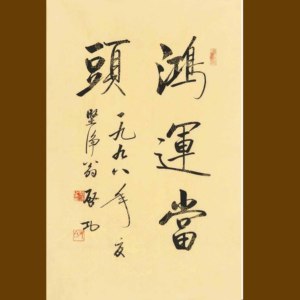 鴻運當
頭
一九九八年夏
堅淨翁啓功